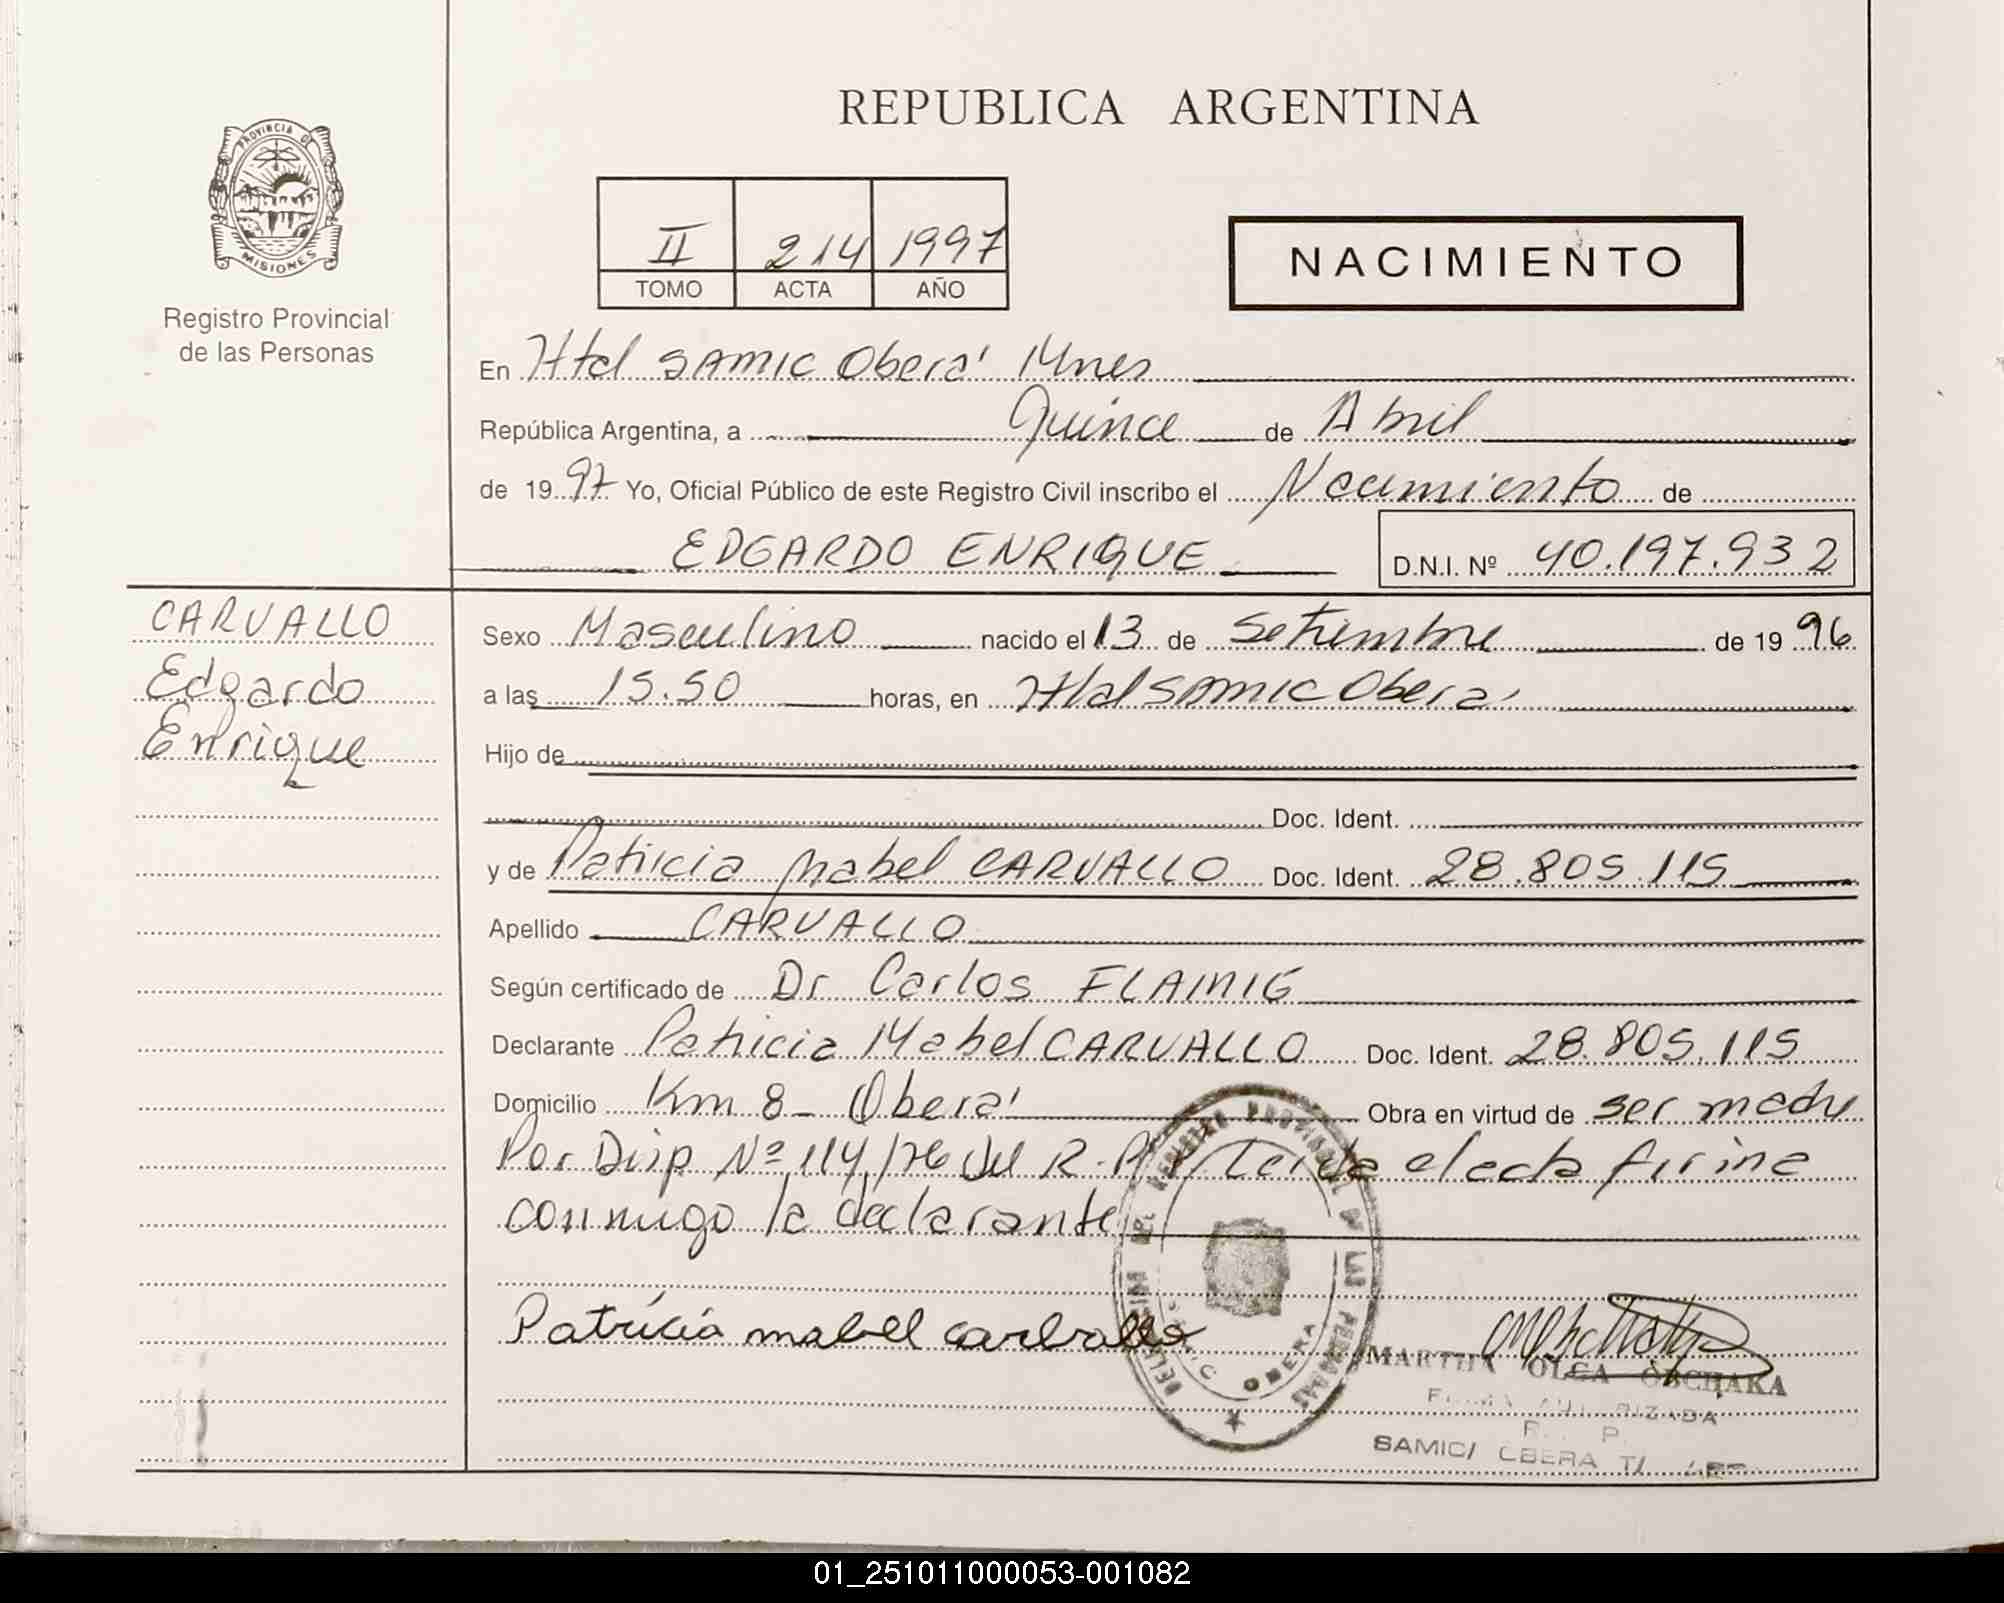 REPUBLICA ARGENTINA
PROVINCIA DE
MISIONES
Registro Provincial
de las Personas
II 214 1997
TOMO ACTA AÑO
NACIMIENTO
En Htal SAMIC Oberá Mnes
República Argentina, a Quince de Abril
de 1997 Yo, Oficial Público de este Registro Civil inscribo el Nacimiento de
EDGARDO ENRIQUE D.N.I. Nº 40.197.932
CARVALLO
Edgardo
Enrique
Sexo Masculino nacido el 13 de Setiembre de 1996
a las 15.50 horas, en Htal SAMIC Oberá
Hijo de
Doc. Ident.
y de Patricia Mabel CARVALLO Doc. Ident. 28.805.115
Apellido CARVALLO
Según certificado de Dr Carlos FLAMIG
Declarante Patricia Mabel CARVALLO Doc. Ident. 28.805.115
Domicilio Km 8 - Oberá Obra en virtud de ser madre
Por Disp Nº 114/76 del R.P.P. Leida el acta firma
conmigo la declarante
Patricia mabel carballo
REGISTRO PROVINCIAL DE LAS PERSONAS
OBERA
MARTHA OLGA OBCHAKA
FIRMA AUTORIZADA
R. P.
SAMIC/ OBERA
01_251011000053-001082